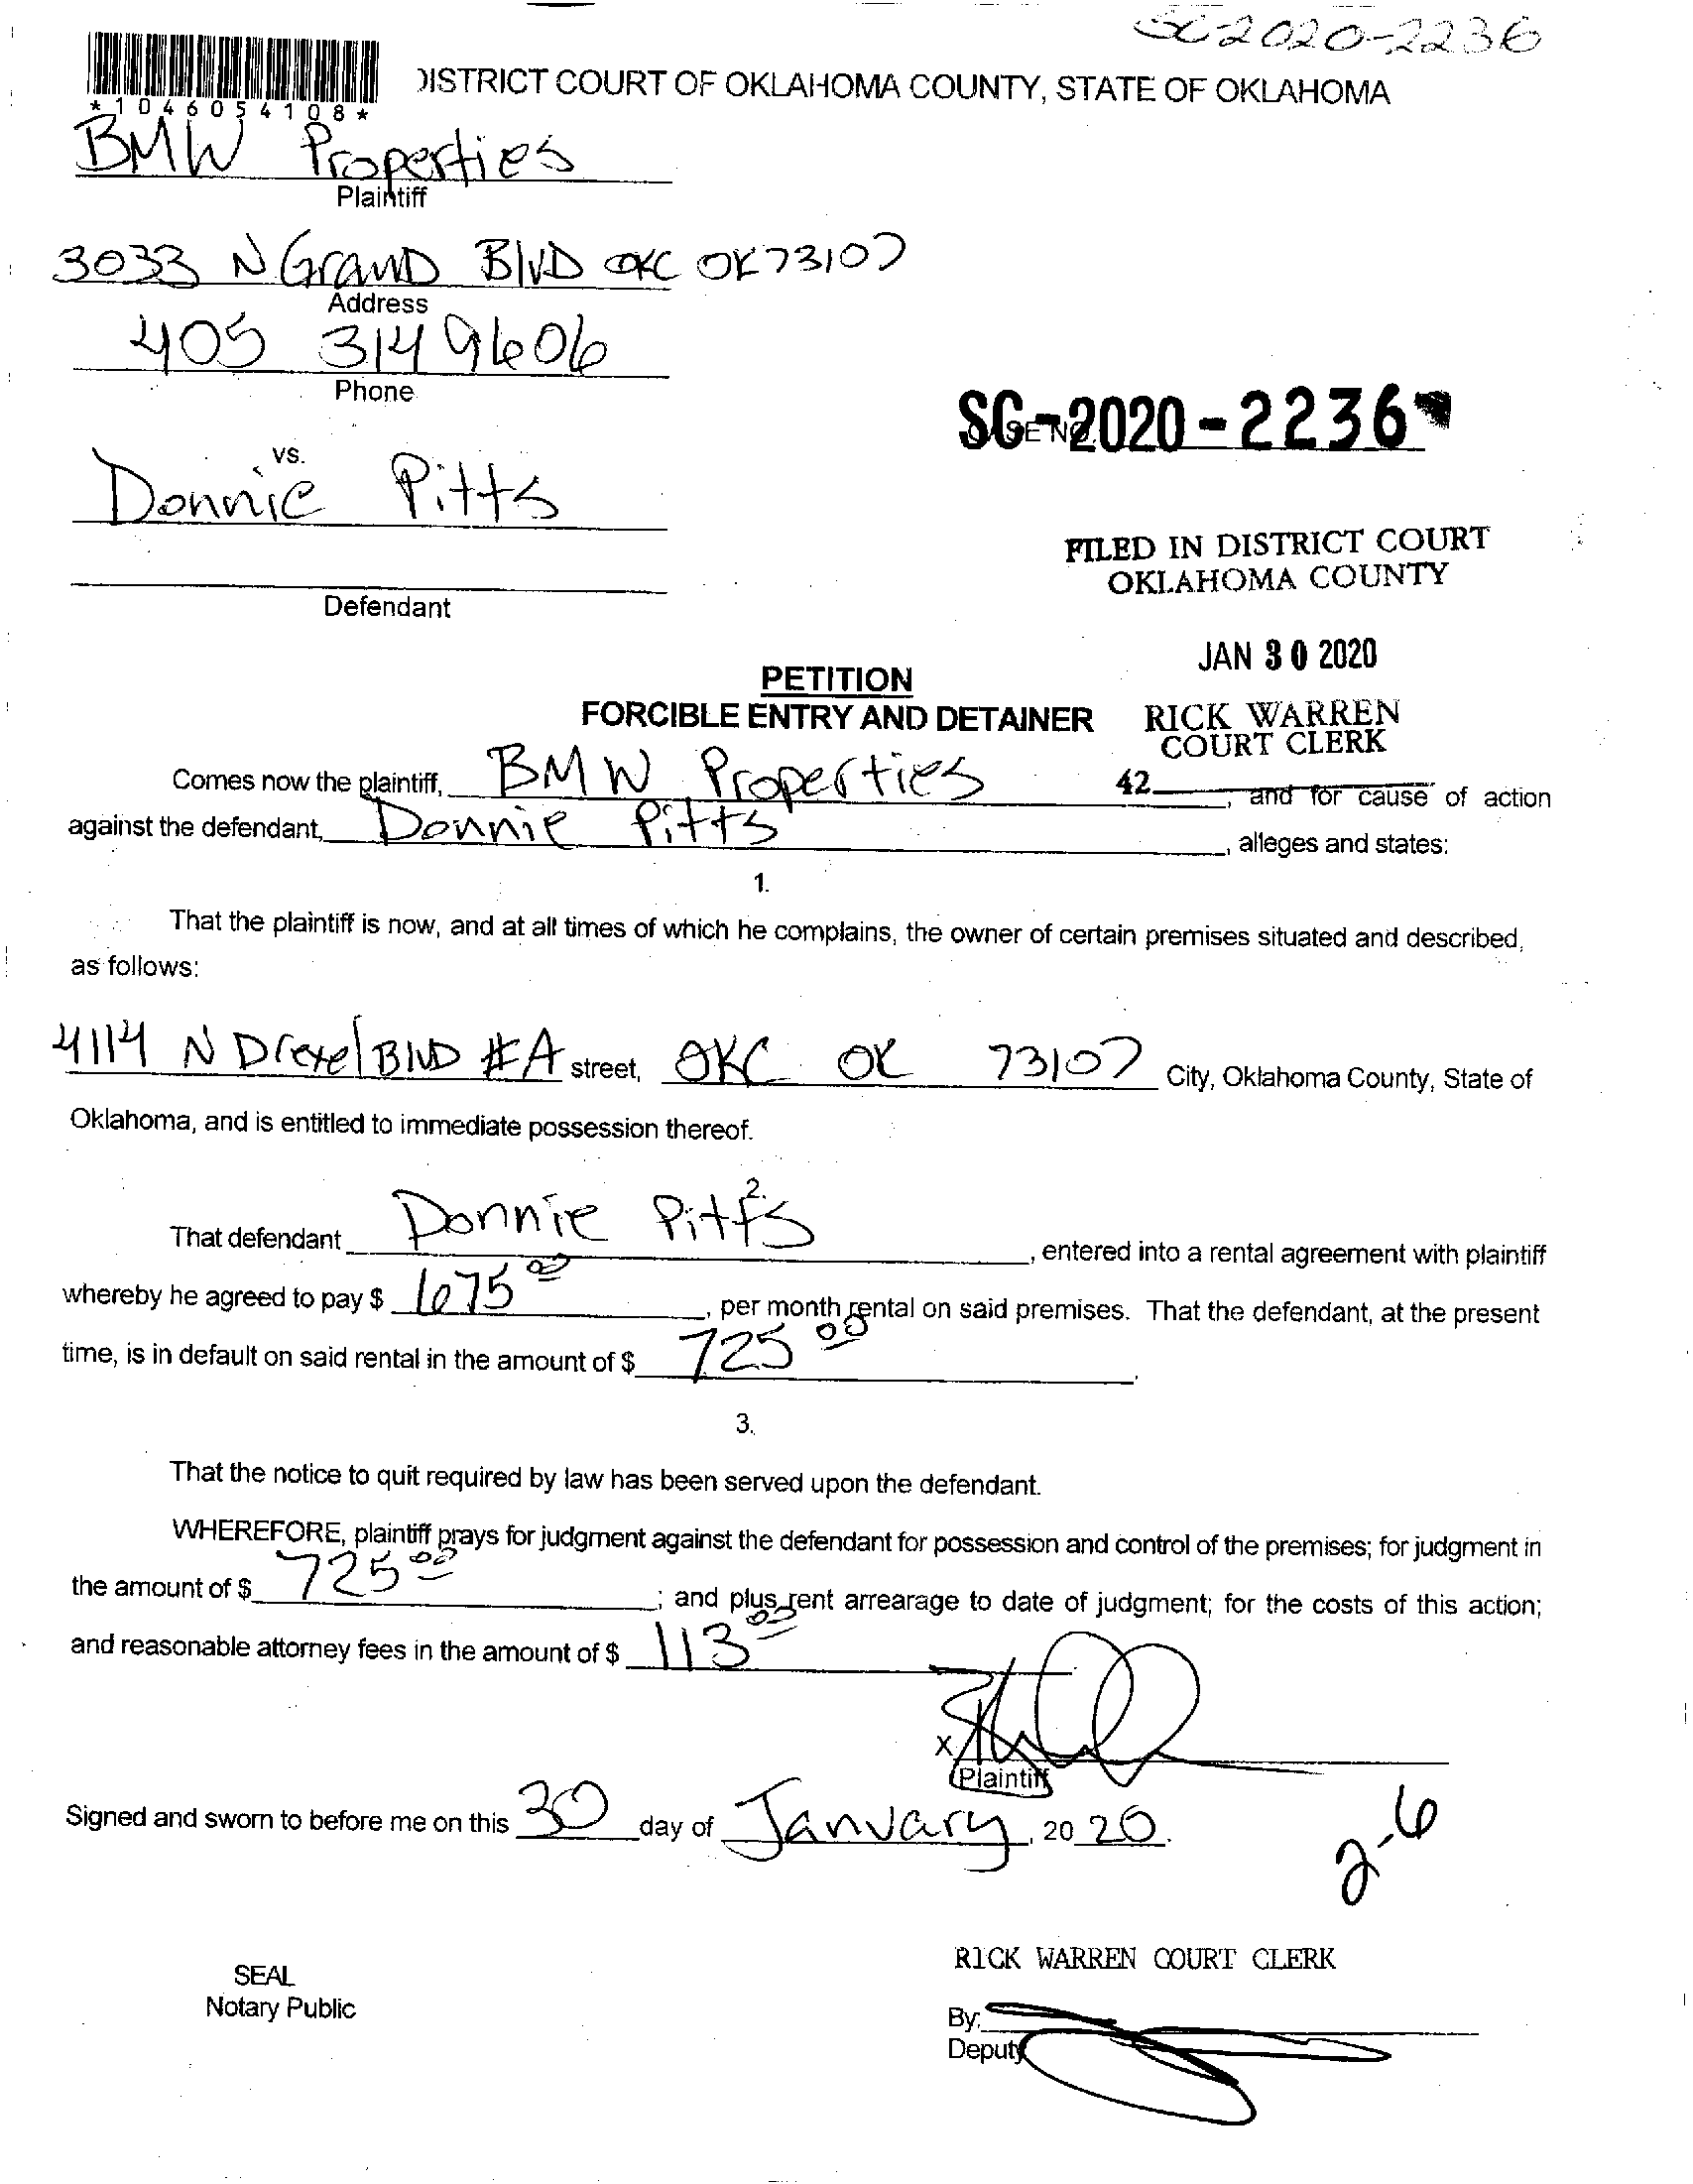 SC-2020-2236
*1046054108*
DISTRICT COURT OF OKLAHOMA COUNTY, STATE OF OKLAHOMA
BMW Properties
Plaintiff
3033 N Grand Blvd OKC OK 73107
Address
405 314 9606
Phone
SC-2020-2236
CASE NO.
vs.
Donnie Pitts
FILED IN DISTRICT COURT
OKLAHOMA COUNTY
Defendant
JAN 30 2020
PETITION
FORCIBLE ENTRY AND DETAINER
RICK WARREN
COURT CLERK
42
Comes now the plaintiff, BMW Properties, and for cause of action
against the defendant, Donnie Pitts, alleges and states:
1.
That the plaintiff is now, and at all times of which he complains, the owner of certain premises situated and described,
as follows:
4114 N Drexel Blvd #A street, OKC OK 73107 City, Oklahoma County, State of
Oklahoma, and is entitled to immediate possession thereof.
2.
That defendant Donnie Pitts, entered into a rental agreement with plaintiff
whereby he agreed to pay $ 675 00, per month rental on said premises. That the defendant, at the present
time, is in default on said rental in the amount of $ 725 00.
3.
That the notice to quit required by law has been served upon the defendant.
WHEREFORE, plaintiff prays for judgment against the defendant for possession and control of the premises; for judgment in
the amount of $ 725 00; and plus rent arrearage to date of judgment; for the costs of this action;
and reasonable attorney fees in the amount of $ 113 00
X
Plaintiff
Signed and sworn to before me on this 30 day of January, 20 20.
2-6
RICK WARREN COURT CLERK
SEAL
Notary Public
By:
Deputy